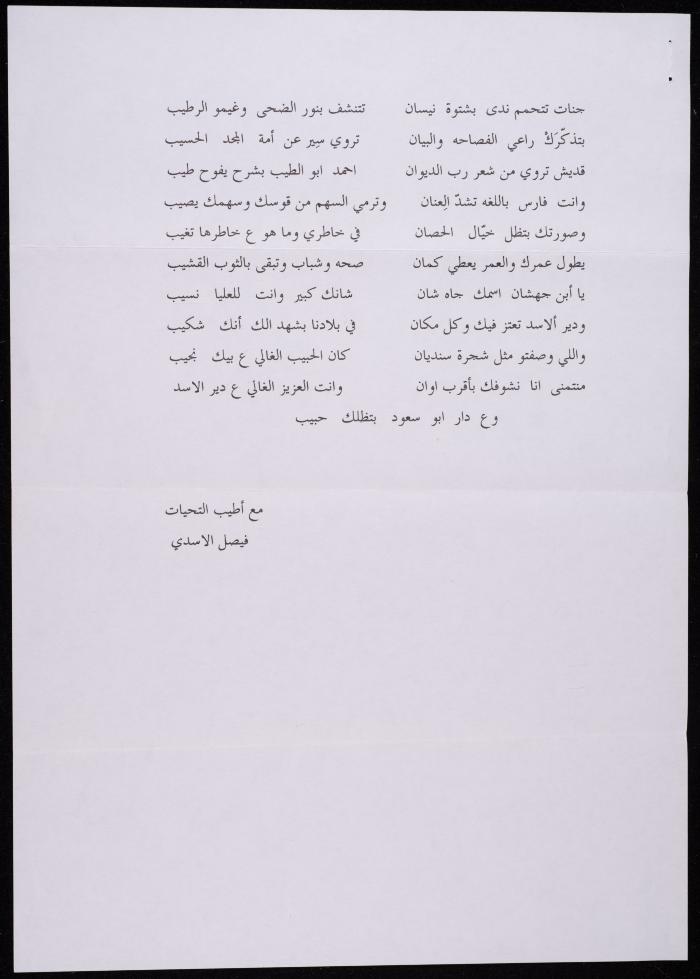 جنات تتحمم ندى بشتوة نيسان تتنشف بنور الضحى وغيمو الرطيب
بتذكّرَكْ راعي الفصاحه والبيان تروي سِير عن أمة المجد الحسيب
قديش تروي من شعر رب الديوان احمد ابو الطيب بشرح يفوح طيب
وانت فارس باللغه تشدّ العِنان وترمي السهم من قوسك وسهمك يصيب
وصورتك بتظل خيّال الحصان في خاطري وما هو ع خاطرها تغيب
يطول عمرك والعمر يعطي كمان صحه وشباب وتبقى بالثوب القشيب
يا أبن جهشان اسمك جاه شان شانك كبير وانت للعليا نسيب
ودير ألاسد تعتز فيك وكل مكان في بلادنا بشهد الك أنك شكيب
واللي وصفتو مثل شجرة سنديان كان الحبيب الغالي ع بيك نجيب
منتمنى انا نشوفك بأقرب اوان وانت العزيز الغالي ع دير الاسد
وع دار ابو سعود بتظلك حبيب
مع أطيب التحيات
فيصل الاسدي